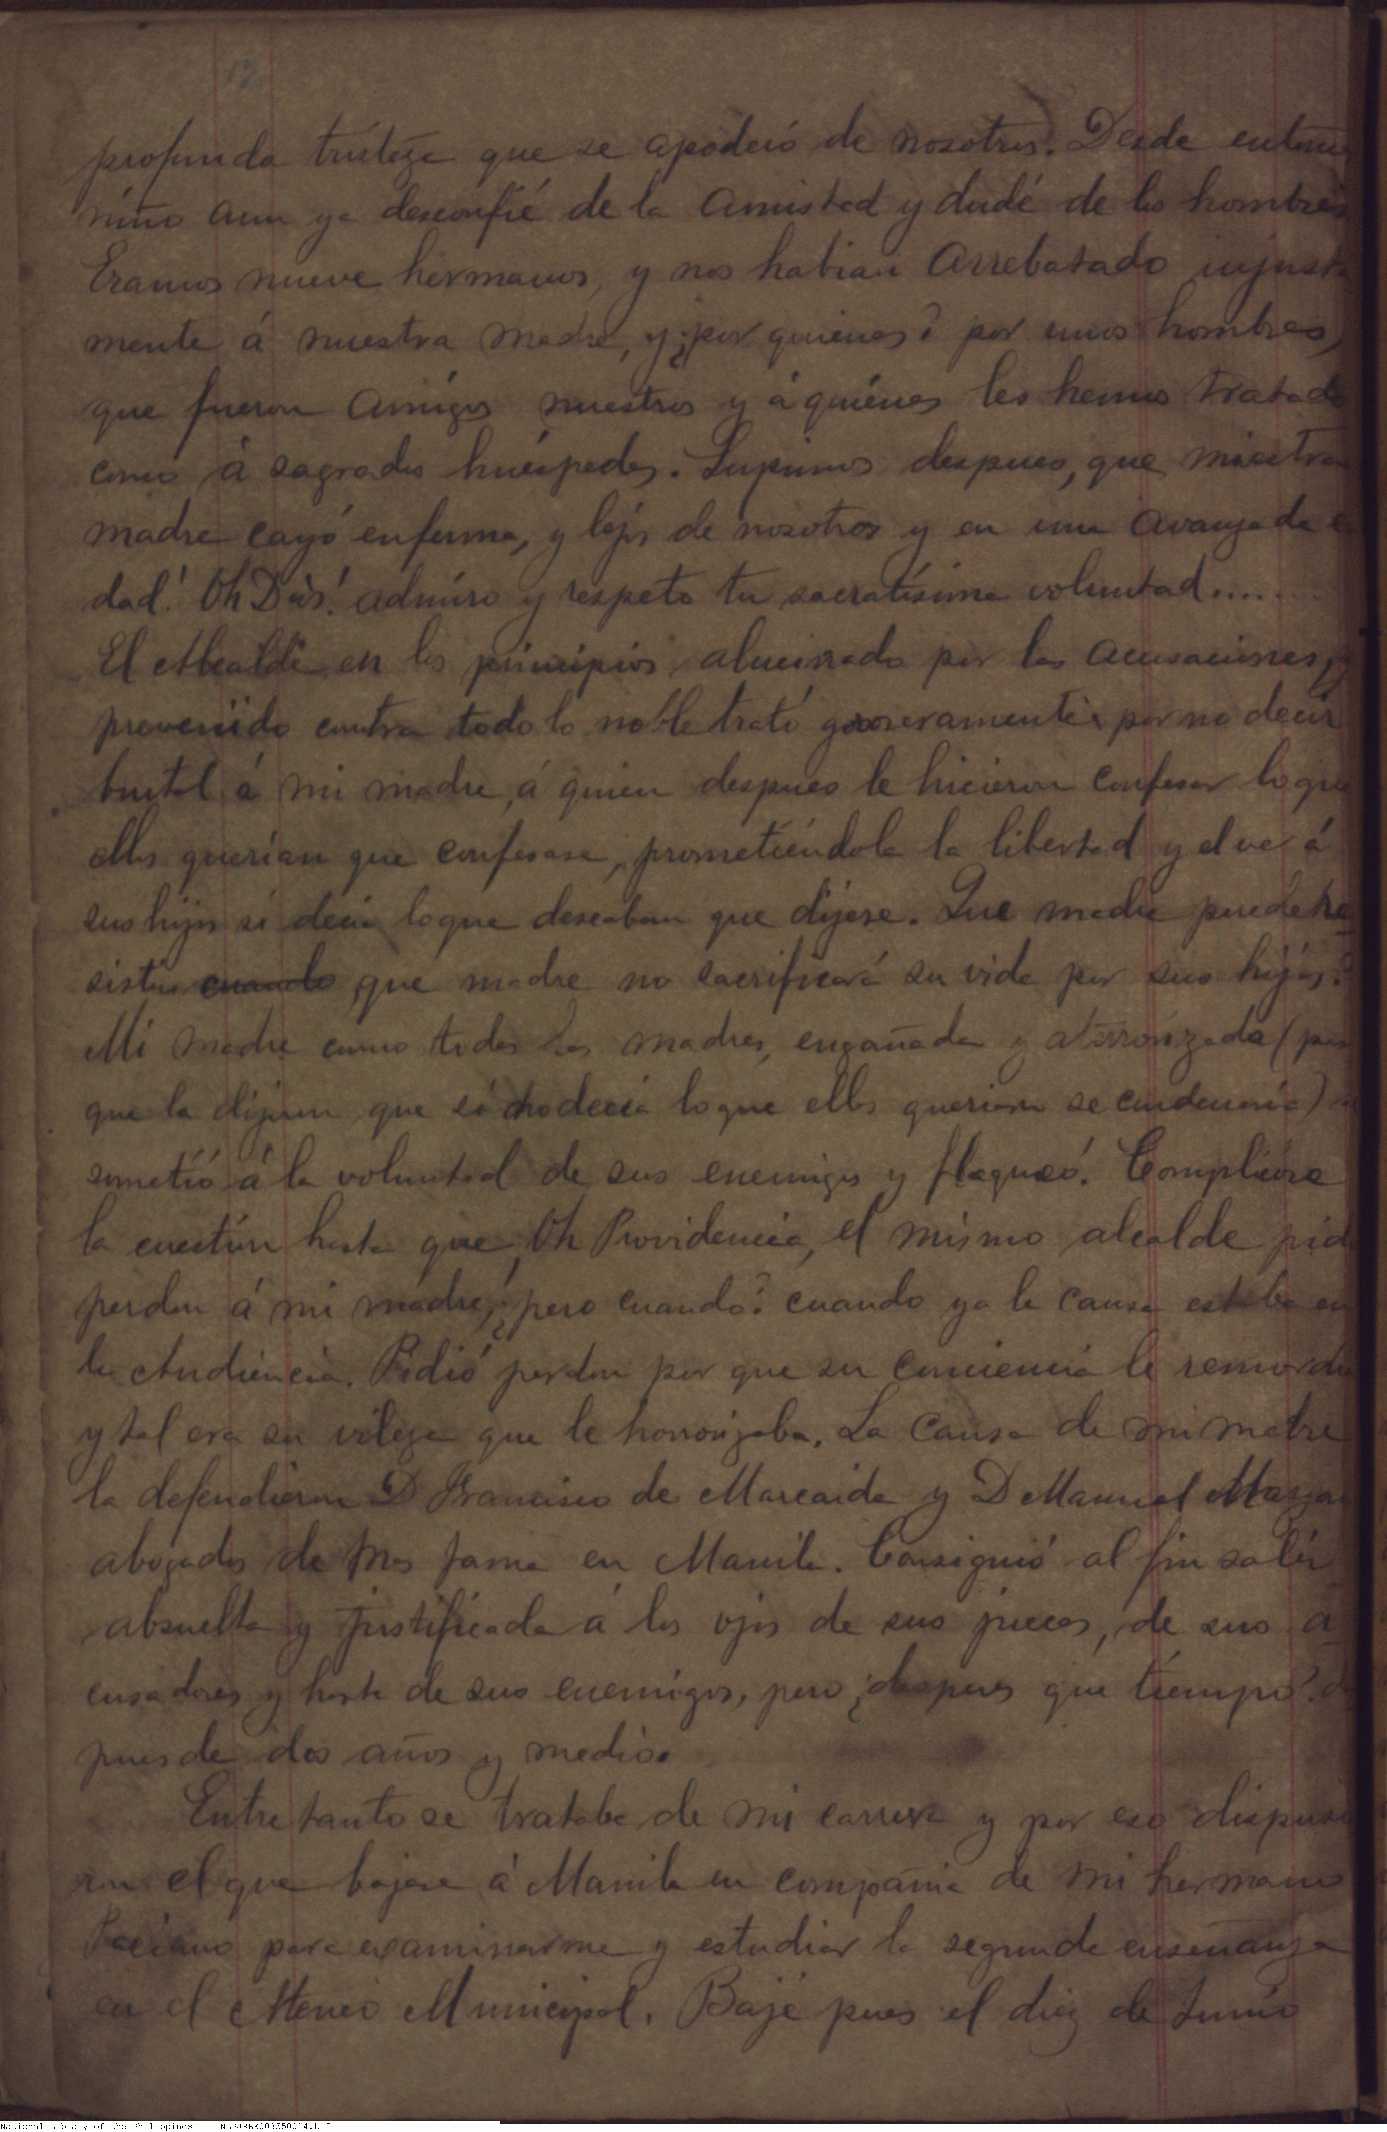 12
profunda tristeza que se apoderó de nosotros. Desde entonces
niño aun ya desconfié de la amistad y dudé de los hombres
Eramos nueve hermanos, y nos habian arrebatado injusta
mente á nuestra madre, y ¿por quienes? por unos hombres,
que fueron amigos nuestros y á quiénes les hemos tratado
como á sagrados huéspedes. Supimos despues, que nuestra
madre cayó enferma, y lejos de nosotros y en una avanzada e
dad! Oh Dios! admiro y respeto tu sacratísima voluntad.......
El Alcalde en los principios alucinado por las acusaciones, y
prevenido contra todo lo noble trató groseramente por no decir
brutal á mi madre, á quien despues le hicieron confesar lo que
ellos querían que confesase, prometiéndola la libertad y el ver á
sus hijos si decia lo que deseaban que dijese. Que madre puede re
sistir cuando que madre no sacrificará su vida por sus hijos?
Mi madre como todas las madres, engañada y aterrorizada (por
que la dijeron que si no decia lo que ellos querian se condenaria)
sometió á la voluntad de sus enemigos y flaqueó. Complicóse
la cuestion hasta que, Oh Providencia, el mismo alcalde pid
perdon á mi madre; ¿pero cuando? cuando ya la causa estaba en
la Audiencia. Pidió perdon por que su conciencia le remordia
y tal era su vileza que le horrorizaba. La causa de mi madre
la defendieron D Francisco de Marcaida y D Manuel
abogados de mas fama en Manila. Consiguió al fin salir
absuelta y justificada á los ojos de sus jueces, de sus a
cusadores y hasta de sus enemigos, pero ¿despues que tiempo? des
pues de dos años y medio.
Entretanto se trataba de mi carrera y por eso dispusie
ron el que bajase á Manila en compañia de mi hermano
Paciano para examinarme y estudiar la segunda enseñanza
en el Ateneo Municipal. Bajé pues el diez de Junio
National Library of the Philippines